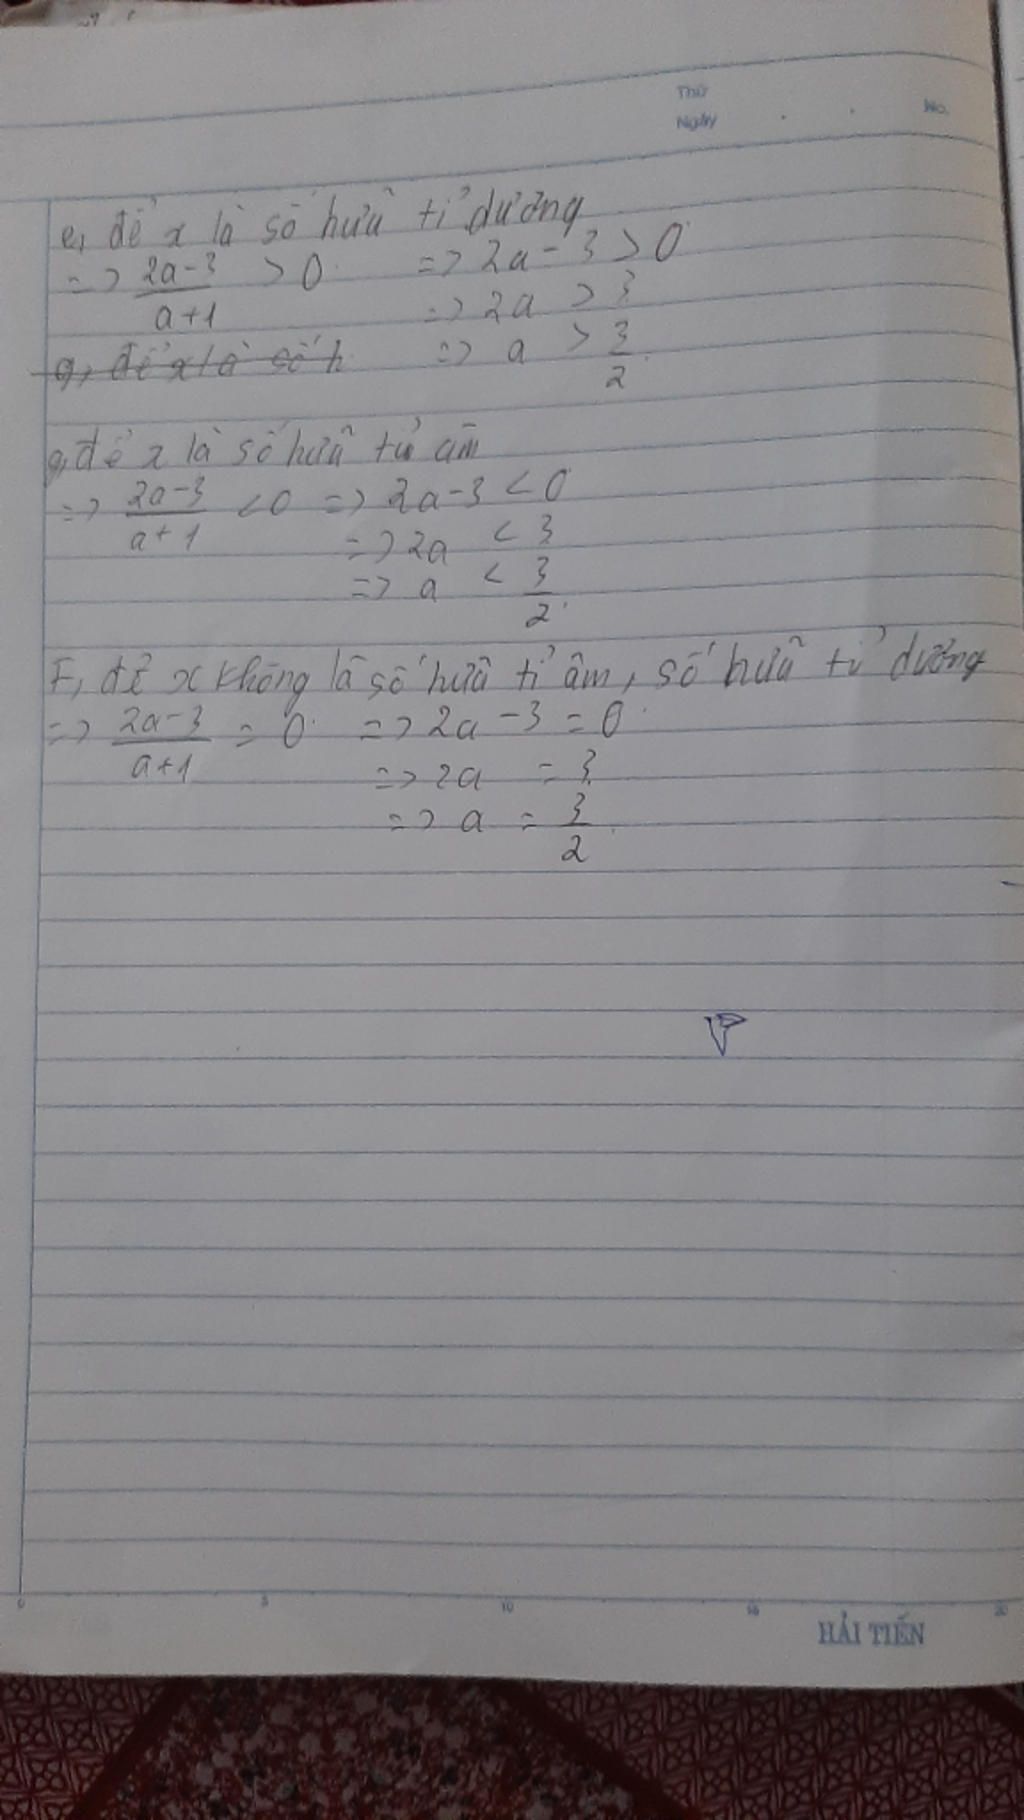 Thứ
Ngày No.
e, để x là số hữu tỉ dương
=> 2a-3/a+1 > 0 => 2a-3 > 0
=> 2a > 3
g, để x là số h => a > 3/2
g, để x là số hữu tỉ âm
=> 2a-3/a+1 < 0 => 2a-3 < 0
=> 2a < 3
=> a < 3/2
F, để x không là số hữu tỉ âm, số hữu tỉ dương
=> 2a-3/a+1 = 0 => 2a-3 = 0
=> 2a = 3
=> a = 3/2
0 5 10 15 20
HẢI TIẾN